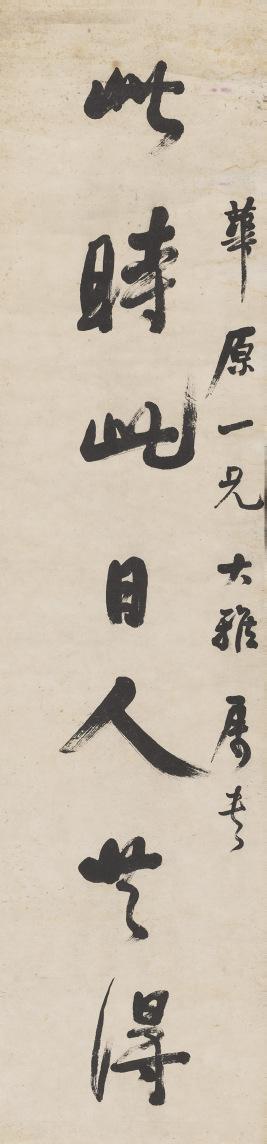 華原一兄大雅屬書
此時此日人共得